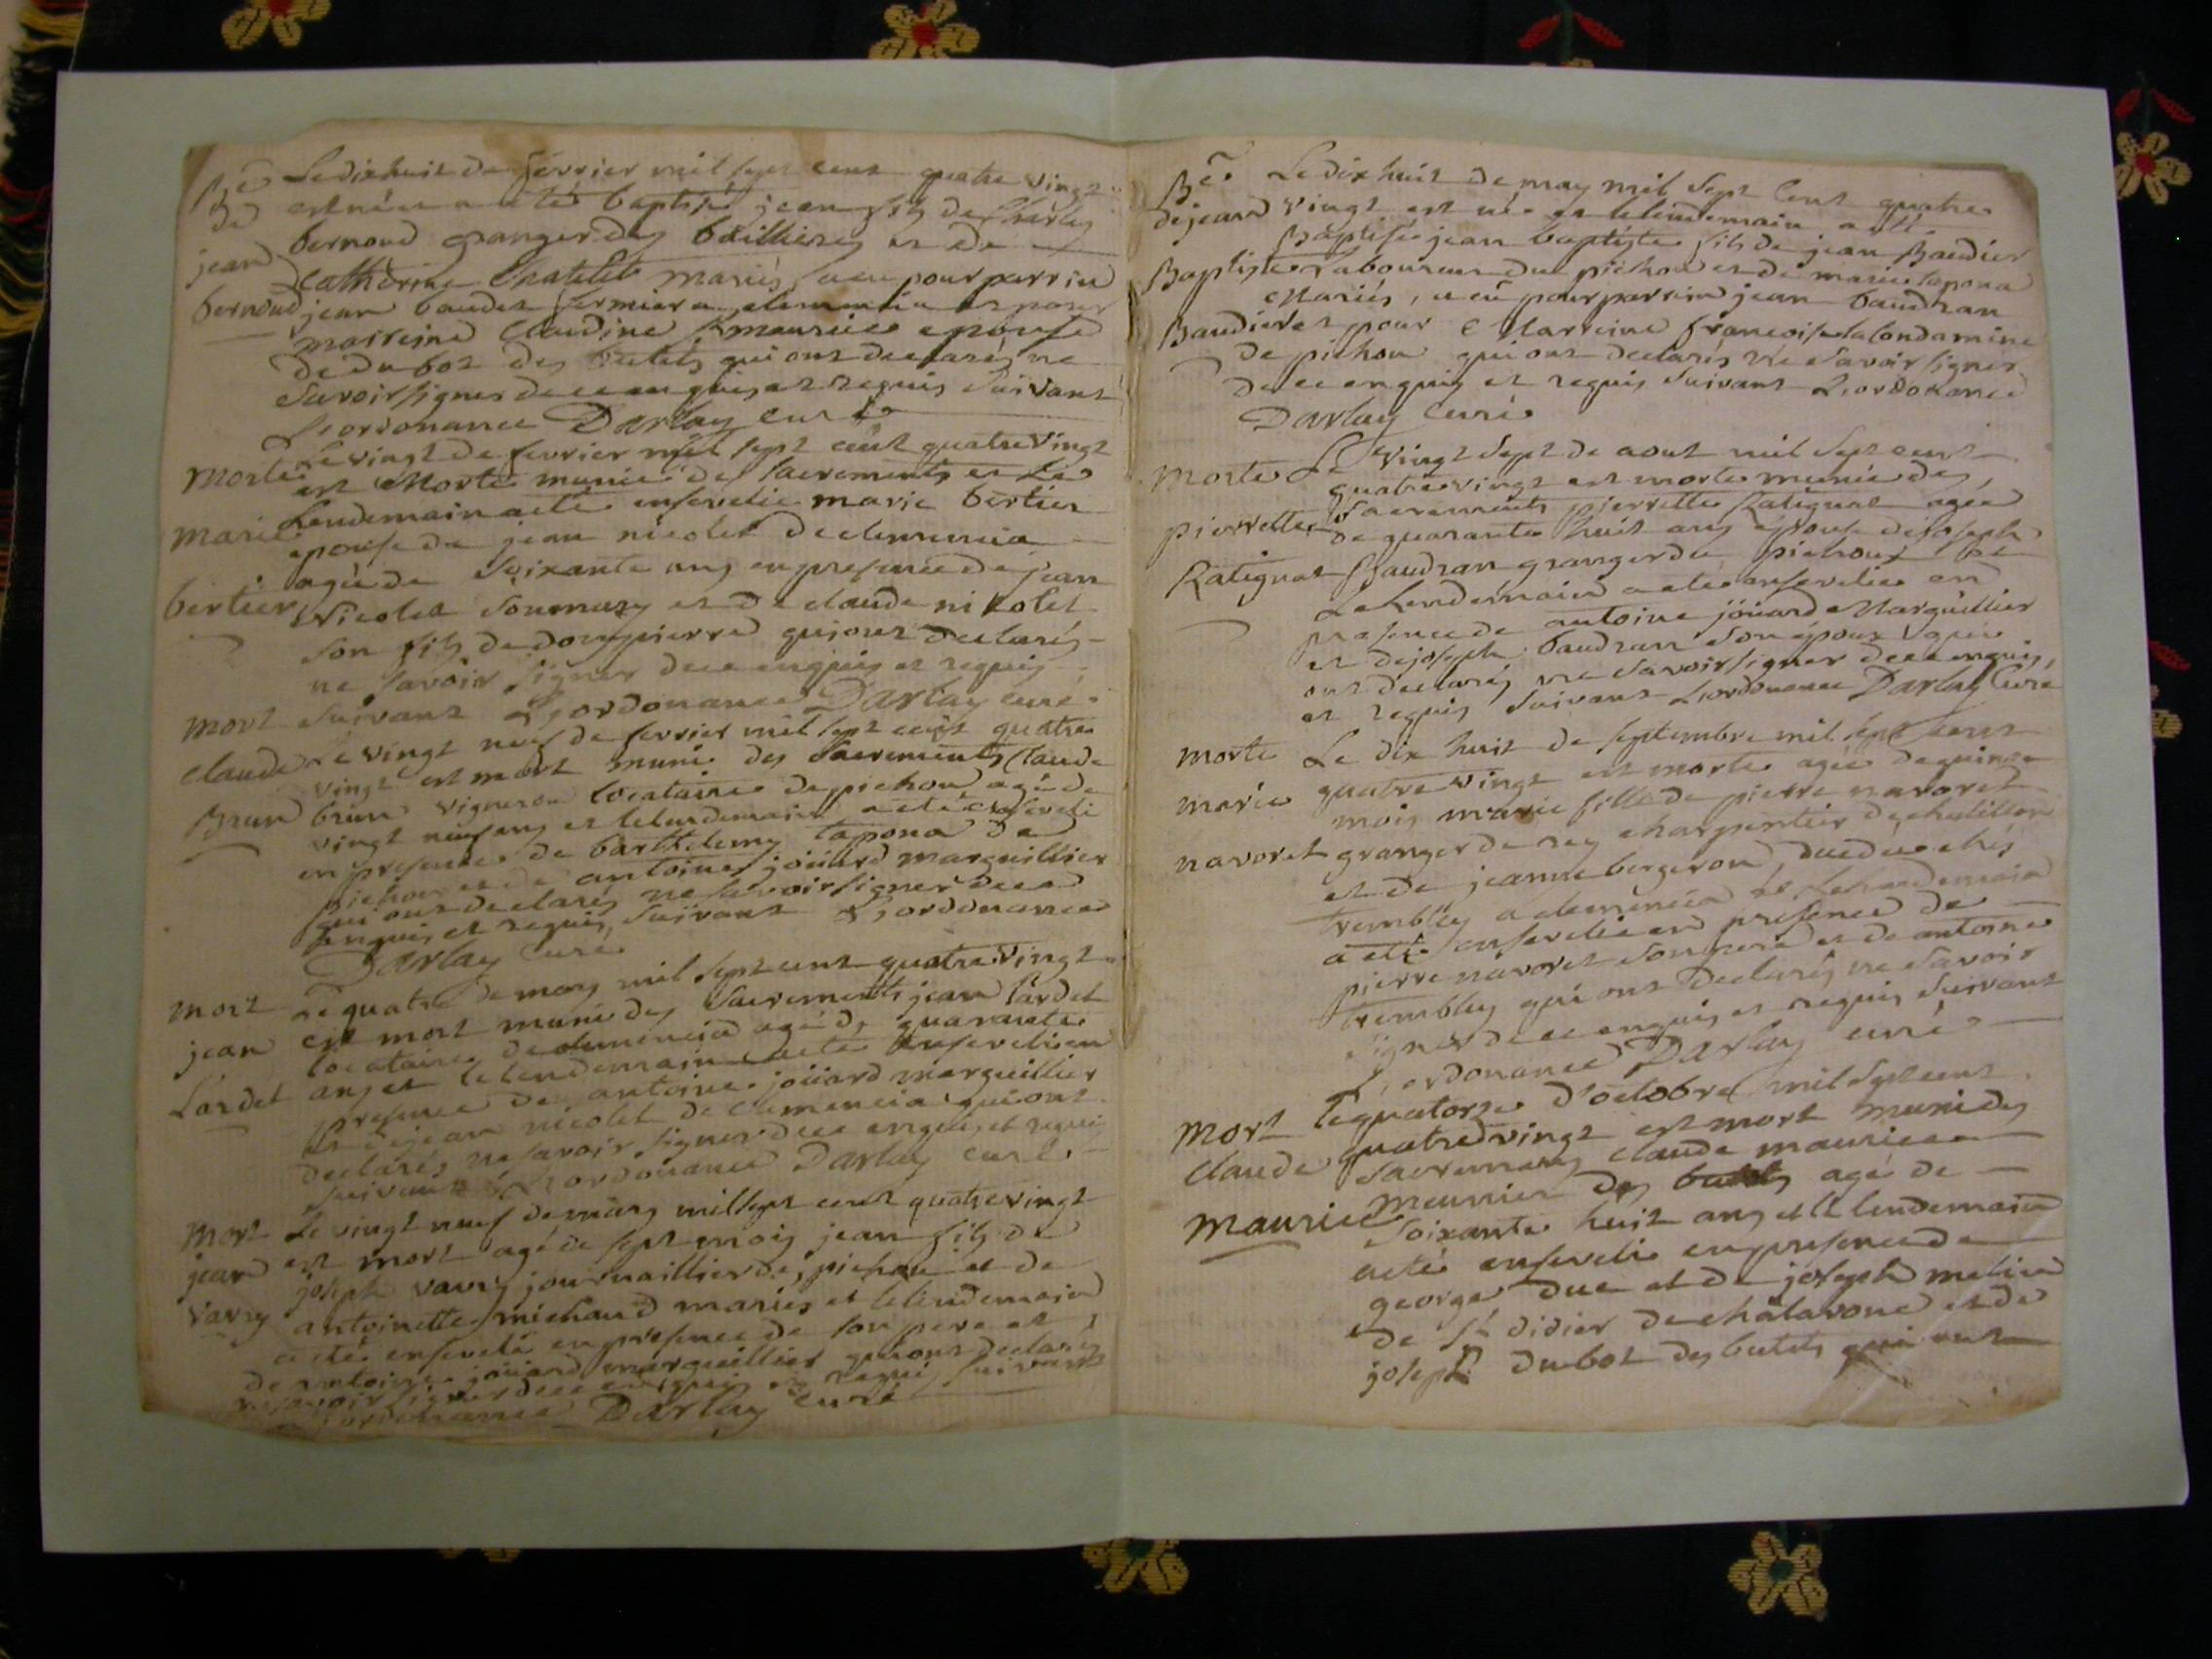 Bê Le dix huit de fevrier mil sept cent quatre vingt
de est né et a eté baptisé jean fils de Charles
jean bernoud granger des baillieres et de
Catherine Chatelet mariés, a eu pour parrin
bernoud jean baudet fermier a clemencia et pour
marreine Claudine maurice epouse
de dubot des butets qui ont declarés ne
savoir signer de ce enquis et requis suivant
L'ordonance Darlay curé
Le vingt de fevrier mil sept cent quatre vingt
Morte est Morte munie des sacrements et Le
Lendemain a eté ensevelie marie bertier
Marie epouse de jean nicolet de clemencia
agée de soixante ans en presence de jean
bertier Nicolet son mary et de claude nicolet
son fils de dompierre qui ont declarés
ne savoir signer de ce enquis et requis
suivant L'ordonance Darlay curé
mort Le vingt neuf de fevrier mil sept cent quatre
claude vingt est mort muni des sacrements Claude
Brun brun vigneron locataire de pichou agé de
vingt neuf ans et le lendemain a eté enseveli
en presence de barthelemy tapona de
pichou et de antoine joüard marguillier
qui ont declarés ne savoir signer de ce
enquis et requis, suivant L'ordonance
Darlay curé
mort Le quatre de mars mil sept cent quatre vingt
jean est mort muni des sacrements jean lardet
locataire de clemencia agé de quarante
Lardet ans et le lendemain a eté enseveli en
presence de antoine joüard marguillier
et de jean nicolet de clemencia qui ont
declarés ne savoir signer de ce enquis et requis
suivant L'ordonance Darlay curé
mort Le vingt neuf de mars mil sept cent quatre vingt
jean est mort agé de sept mois jean fils de
joseph vavry journaillier de pichou et de
vavry antoinette michaud mariés et le lendemain
a eté enseveli en presence de son pere et
de antoine joüard marguillier qui ont declarés
ne savoir signer de ce enquis et requis suivant
L'ordonance Darlay curé
Bê Le dix huit de may mil sept cent quatre
de jean vingt est né et le lendemain a eté
Baptisé jean baptiste fils de jean Baudier
Baptiste Laboureur du pichou et de marie tapona
Mariés, a eû pour parrin jean baudran
Baudier et pour Marreine francoise lacondamine
de pichou qui ont declarés ne savoir signer
de ce enquis et requis suivant L'ordonance
Darlay Curé
morte Le vingt sept de aout mil sept cent
quatre vingt est morte munie des
pierrette sacrements pierrette Ratignat agée
de quarante huit ans epouse de joseph
Ratignat Baudran granger du pichoux
Le Lendemain a eté ensevelie en
presence de antoine joüard Marguillier
et de joseph baudran son epoux qui
ont declarés ne savoir signer de ce enquis,
et requis suivant L'ordonance Darlay Curé
morte Le dix huit de septembre mil sept cent
marie quatre vingt est morte agée de quinze
mois marie fille de pierre navoret
navoret granger de charpentier de chatillon
et de jeanne bergeron, chés
trembley a clemencia et le lendemain
a eté ensevelie en presence de
pierre navoret son pere et de antoine
trembley qui ont declarés ne savoir
signer de ce enquis et requis suivant
L'ordonance Darlay curé
mort Le quatorze d'octobre mil sept cent
claude quatre vingt est mort muni des
sacrements claude maurice
maurice meunier des butets agé de
soixante huit ans et le lendemain
a eté enseveli en presence de
george duc et de joseph
de st didier de chalarone et de
joseph dubot des butets qui ont